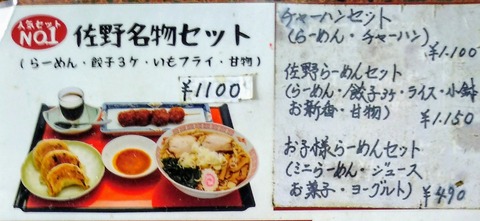 人気セット
NO1
佐野名物セット
(らーめん・餃子3ケ・いもフライ・甘物)
¥1100
チャーハンセット
(らーめん・チャーハン)
¥1.100
佐野らーめんセット
(らーめん・餃子3ケ・ライス・小鉢
お新香・甘物)
¥1.150
お子様らーめんセット
(ミニらーめん・ジュース
お菓子・ヨーグルト)
¥490